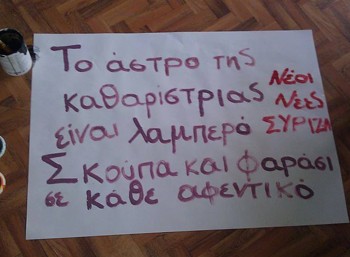 Το άστρο της
καθαρίστριας
είναι λαμπερό
Σκούπα και φαράσι
σε κάθε αφεντικό
Νέοι
Νέες
ΣΥΡΙΖΑ